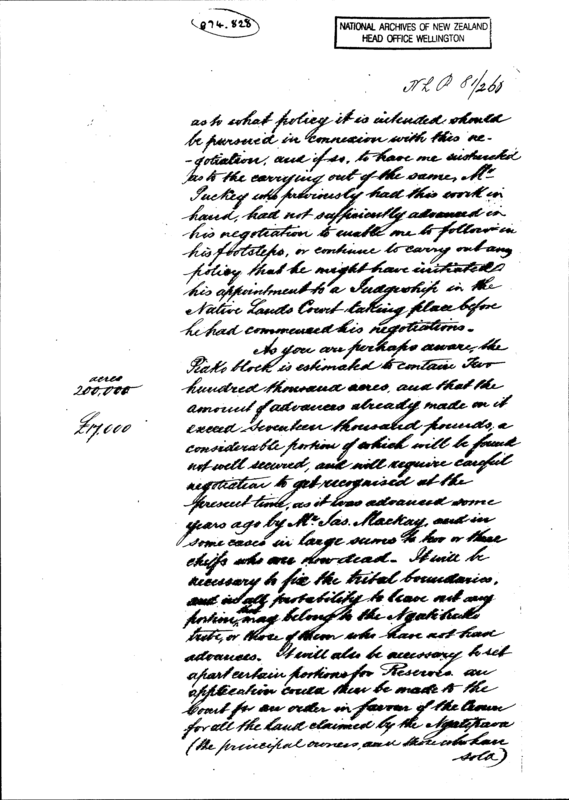 074.828
NATIONAL ARCHIVES OF NEW ZEALAND
HEAD OFFICE WELLINGTON
N L P 81/268
as to what policy it is intended should
be pursued in connexion with this ne-
-gotiation, and if so, to have me instructed
as to the carrying out of the same, Mr
Puckey who previously had this work in
hand, had not sufficiently advanced in
his negotiation to enable me to follow in
his footsteps, or continue to carry out any
policy that he might have initiated
his appointment to a Judgeship in the
Native Lands Court taking place before
he had commenced his negotiations.-
As you are perhaps aware, the
Piako block is estimated to contain Two
hundred thousand acres, and that the
acres
200,000
amount of advances already made on it
exceed seventeen thousand pounds, a
£17,000
considerable portion of which will be found
not well secured, and will require careful
negotiation to get recognised at the
present time, as it was advanced some
years ago by Mr Jas. Mackay, and in
some cases in large sums to two or three
chiefs who are now dead.- It will be
necessary to fix the tribal boundaries,
and in all probability to leave out any
portion that may belong to the
tribe, or those of them who have not had
advances. It will also be necessary to set
apart certain portions for Reserves. an
application could then be made to the
Court for an order in favour of the Crown
for all the land claimed by the Ngatipaoa
(the principal owners, and those who have
sold)